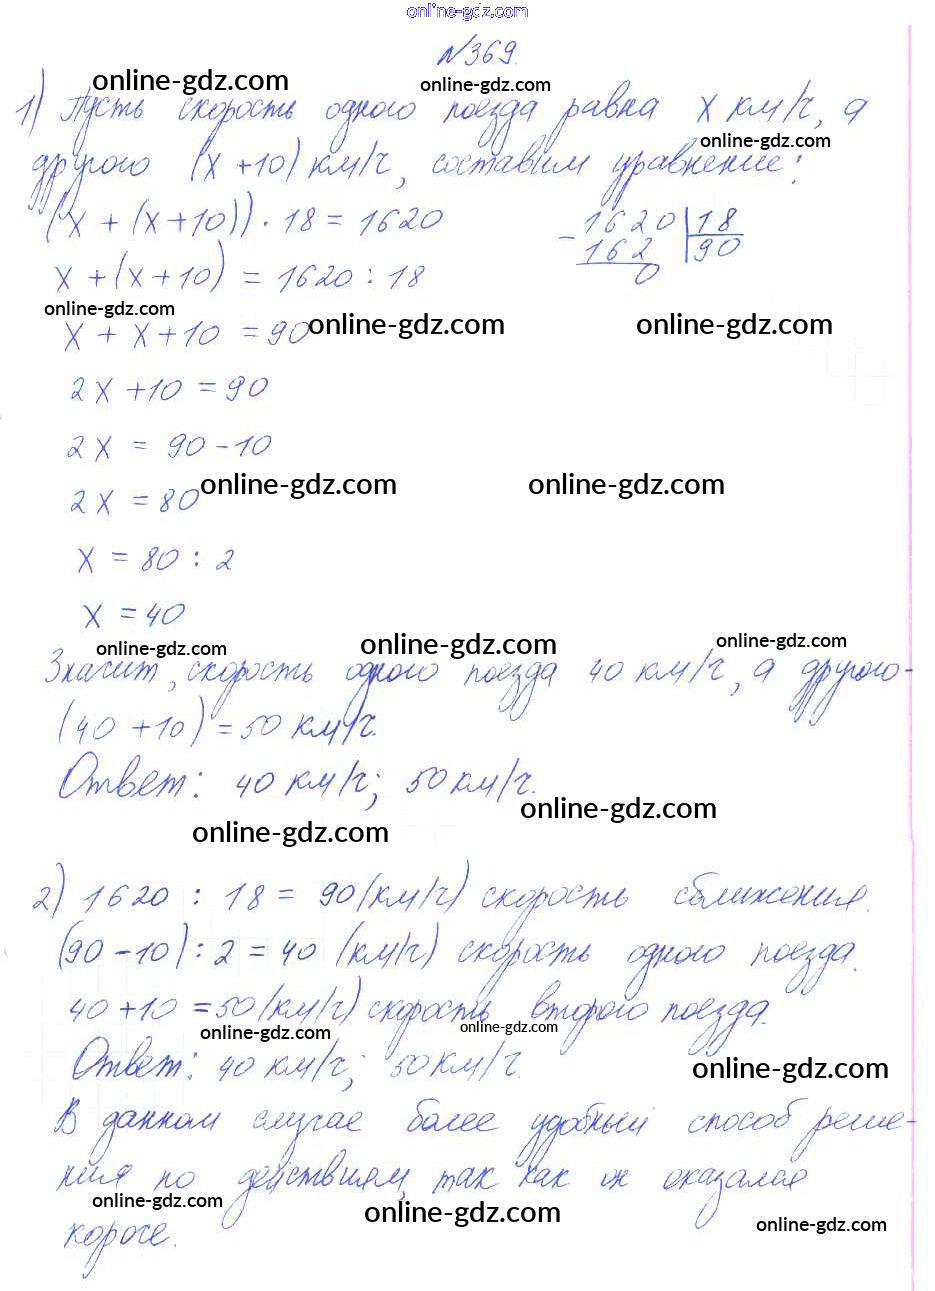 online-gdz.com
№369.
online-gdz.com online-gdz.com
1) Пусть скорость одного поезда равна х км/ч, а
online-gdz.com
другого (х+10) км/ч, составим уравнение:
(х + (х+10)) · 18 = 1620
1620 | 18
- 162 | 90
0
х + (х+10) = 1620 : 18
online-gdz.com online-gdz.com online-gdz.com
х + х + 10 = 90
2х + 10 = 90
2х = 90 - 10
online-gdz.com online-gdz.com
2х = 80
х = 80 : 2
х = 40
online-gdz.com online-gdz.com online-gdz.com
Значит, скорость одного поезда 40 км/ч, а другого-
(40 + 10) = 50 км/ч.
Ответ: 40 км/ч; 50 км/ч.
online-gdz.com
online-gdz.com
2) 1620 : 18 = 90 (км/ч) скорость сближения.
(90 - 10) : 2 = 40 (км/ч) скорость одного поезда.
40 + 10 = 50 (км/ч) скорость второго поезда.
online-gdz.com online-gdz.com
Ответ: 40 км/ч; 50 км/ч.
online-gdz.com
В данном случае более удобный способ реше-
ния по действиям, так как он оказался
online-gdz.com online-gdz.com online-gdz.com
короче.